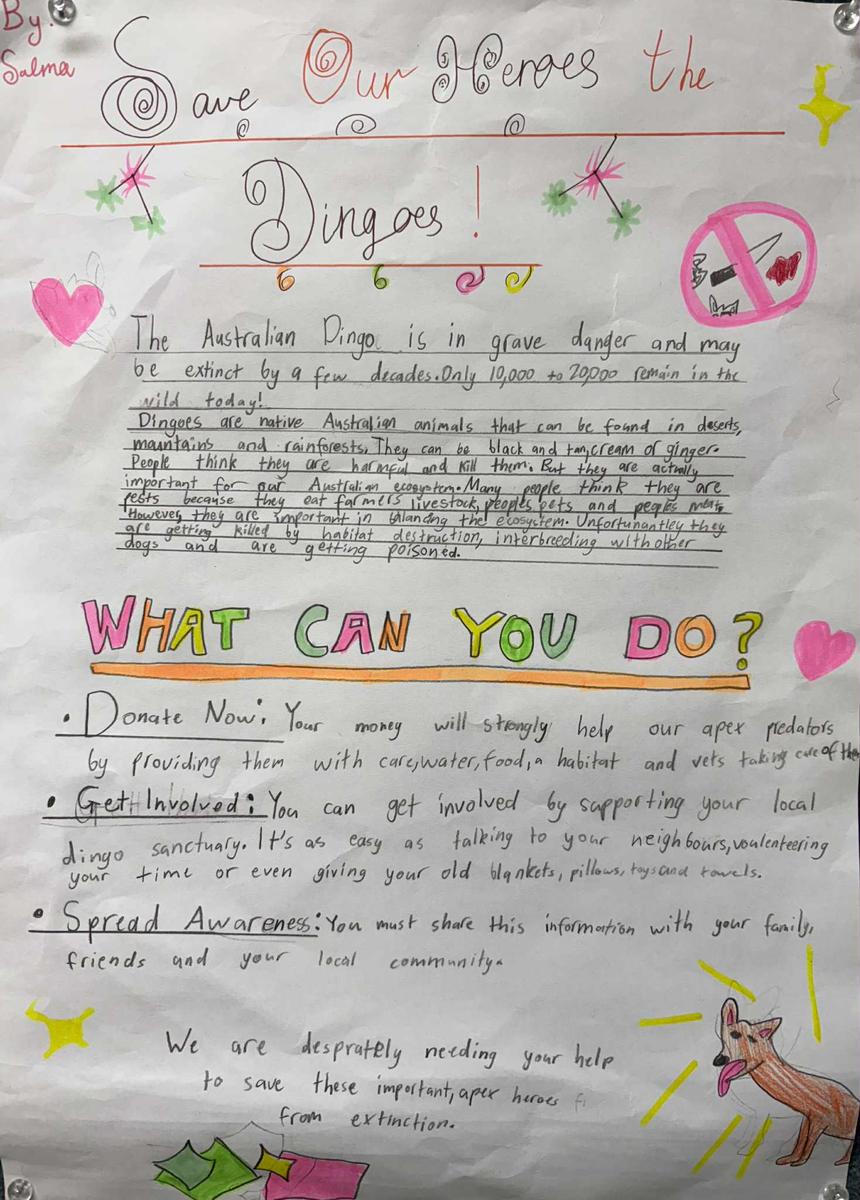 By:
Salma
Save Our Heroes the
Dingoes!
The Australian Dingo is in grave danger and may
be extinct by a few decades. Only 10,000 to 20,000 remain in the
wild today!
Dingoes are native Australian animals that can be found in deserts,
mountains and rainforests. They can be black and tan, cream or ginger.
People think they are harmful and kill them. But they are actually
important for our Australian ecosystem. Many people think they are
pests because they eat farmers livestock, peoples pets and peoples meats
However, they are important in balancing the ecosystem. Unfortunantley they
are getting killed by habitat destruction, interbreeding with other
dogs and are getting poisoned.
WHAT CAN YOU DO?
• Donate Now: Your money will strongly help our apex predators
by providing them with care, water, food, a habitat and vets taking care of them
• Get Involved: You can get involved by supporting your local
dingo sanctuary. It's as easy as talking to your neighbours, voulenteering
your time or even giving your old blankets, pillows, toys and towels.
• Spread Awareness: You must share this information with your family,
friends and your local community.
We are desprately needing your help
to save these important, apex heroes
from extinction.